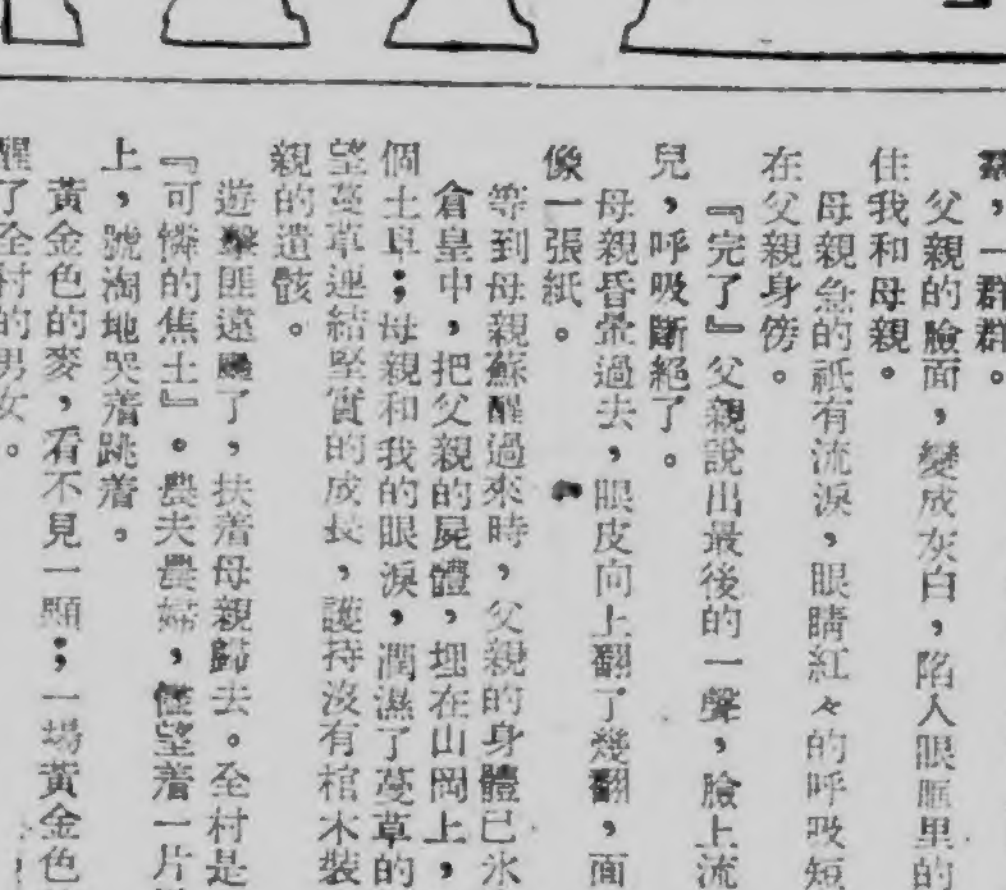 ，一群群。
父親的臉面，變成灰白，陷入眼眶里的
住我和母親。
母親急的祇有流淚，眼睛紅々的呼吸短
在父親身傍。
『完了』父親說出最後的一聲，臉上流
兒，呼吸斷絕了。
母親昏暈過去，眼皮向上翻了幾翻，面
像一張紙。
等到母親蘇醒過來時，父親的身體已氷
倉皇中，把父親的屍體，埋在山岡上，
個土阜；母親和我的眼淚，潤濕了蔓草的
望蔓草連結堅實的成長，護持沒有棺木裝
親的遺骸。
遊擊匪遠颺了，扶着母親歸去。全村是
『可憐的焦土』。農夫農婦，儘望着一片
上，號淘地哭着跳着。
黃金色的麥，看不見一顆；一場黃金色
醒了全村的男女。